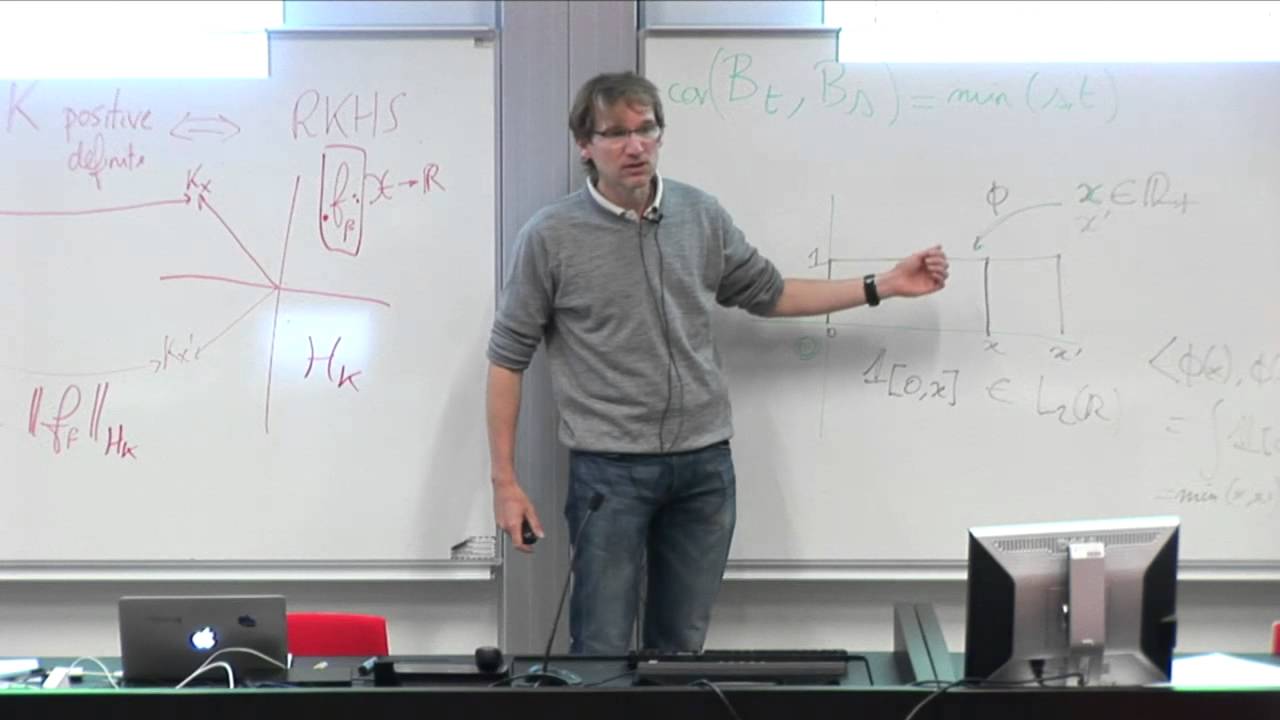 K positive definite ⟺ RKHS
K_x
f_F : X → ℝ
K_x'
H_K
‖f_F‖_{H_K}
cov(B_t, B_s) = min(s,t)
ϕ x ∈ ℝ_+
x'
1
0 x x'
1[0,x] ∈ L_2(ℝ)
<ϕ(x), ϕ
= ∫ 1[0
= min(x,x'